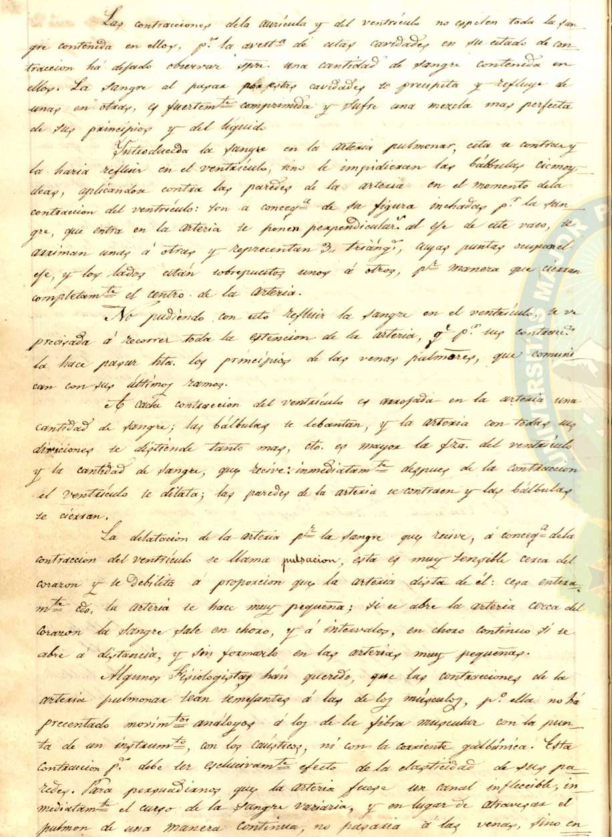 Las contracciones dela aurícula y del ventrículo no espelen toda la san-
gre contenida en ellos, p.r la avert.ª de estas cavidades en su estado de con-
traccion há dejado observar spre. una cantidad de sangre contenida en
ellos. La sangre al pasar por estas cavidades se precipita y refluye de
unas en otras, es fuertem.te comprimida y sufre una mezcla mas perfecta
de sus principios y del liquid
Introducida la sangre en la arteria pulmonar, esta se contrae y
la haria refluir en el ventrículo, sino se impidieran las bálbulas
aplicandose contra las paredes de la arteria en el momento dela
contraccion del ventrículo: son a conceq.ª de su figura inchadas p.r la san-
gre, qué entra en la arteria se ponen perpendicular.s al eje de este vaso, se
arriman unas á otras y representan 3. triáng.s, cuyas puntas ocupan el
eje, y los lados están sobrepuestos unos á otros, p.r manera que cierran
completam.te el centro de la arteria.
No pudiendo con esto refluir la sangre en el ventrículo, se ve
precisada á recorrer toda la estencion de la arteria, q.e p.r sus contracc.s
la hace pasar hta. los principios de las venas pulmores, que comuni-
can con sus últimos ramos.
A cada contraccion del ventrículo es arrojada en la arteria una
cantidad de sangre; las bálbulas se lebantan, y la arteria con todas sus
diviciones se distiende tanto mas, cto. es mayor la fza. del ventrículo
y la cantidad de sangre, que recive: inmediatam.te despues de la contraccion
el ventrículo se dilata; las paredes de la arteria se contraen y las bálbulas
se cierran.
La delatacion de la arteria p.r la sangre que recive, á conceq.ª dela
contraccion del ventrículo se llama pulsacion, esta es muy sensible cerca del
corazon y se debilita a proporcion que la arteria dista de él: cesa entera-
m.te cdo. la arteria se hace muy pequeña; si se abre la arteria cerca del
corazon la sangre sale en chorro, y á intervalos, en chorro continuo si se
abre á distancia, y sin formarlo en las arterias muy pequeñas.
Algunos Fisiologistas hán querido, que las contracciones de la
arteria pulmonar sean semejantes á las de los músculos, p.º ella no há
precentado movim.tos análogos á los de la fibra muscular con la pun-
ta de un instrum.to, con los caústicos, ni con la corriente galbánica. Esta
contraccion p.s debe ser esclusivam.te efecto de la elasticidad de sus pa-
redes. Para persuadirnos que la arteria fuese un canal inflecsible, in-
mediatam.te el curso de la sangre variaria, y en lugar de atravesar el
pulmon de una manera continua, no pasaria á las venas, sino en